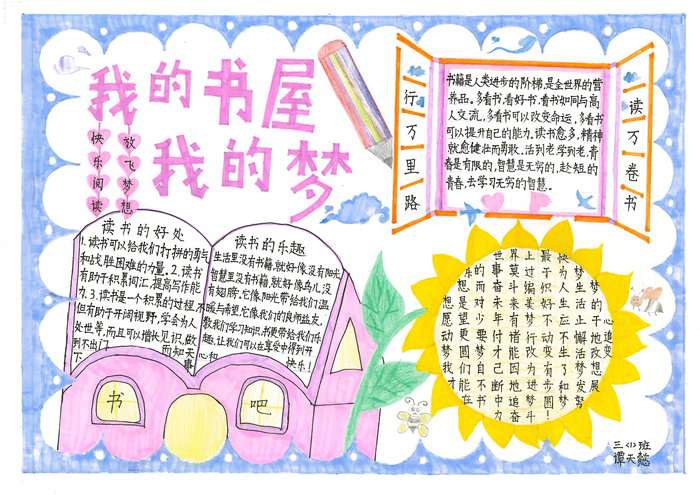 我的书屋
我的梦
快乐阅读
放飞梦想
行万里路
读万卷书
书籍是人类进步的阶梯,是全世界的营
养品。多看书,看好书,看书如同与高
人交流,多看书可以改变命运,多看书
可以提升自己的能力。读书愈多,精神
就愈健壮而勇敢,活到老学到老,青
春是有限的,智慧是无穷的,趁短的
青春,去学习无穷的智慧。
读书的好处
1.读书可以给我们打拼的勇气
和战胜困难的力量。2.读书
有助于积累词汇,提高写作能
力。3.读书是个积累的过程,不但
有助于开阔视野,学会为人
处世等,而且可以增长见识,做
到不出门而知天下
读书的乐趣
生活里没有书籍,就好像没有阳光
智慧里没有书籍,就好像鸟儿没
有翅膀,它像阳光带给我们温
暖与希望,它像我们的良师益友,
教我们学习知识,书更带给我们乐
趣,让我们可以在享受中得到开心和
快乐!
书
吧
快为人生应不生了和梦
上过编美梦行改为进梦斗
世事奋未年付才己断中力
的而对少要梦自不书
想是望更圆们能在
想愿动梦我才
三〈1〉班
谭天懿